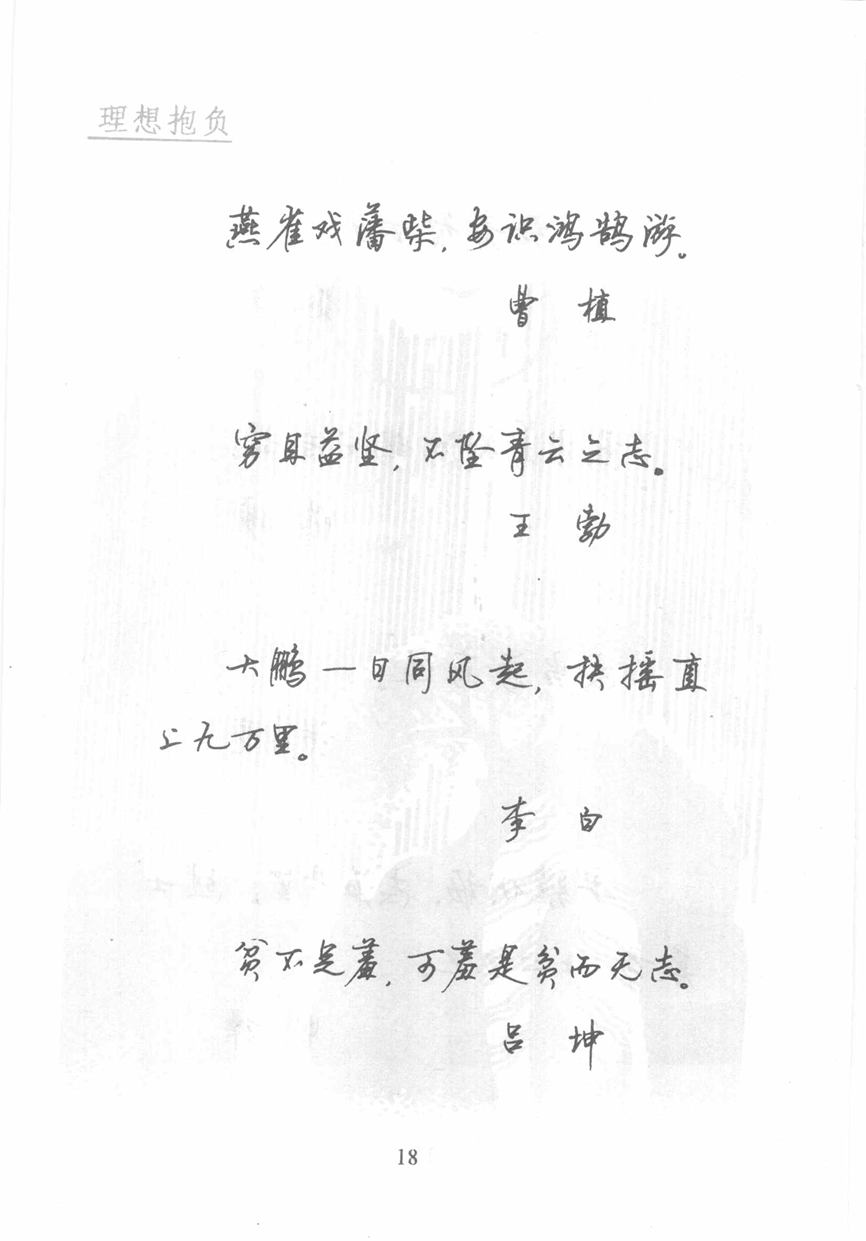 理想抱负
燕雀戏藩柴，安识鸿鹄游。
曹 植
穷且益坚，不坠青云之志。
王 勃
大鹏一日同风起，扶摇直
上九万里。
李 白
贫不足羞，可羞是贫而无志。
吕 坤
18